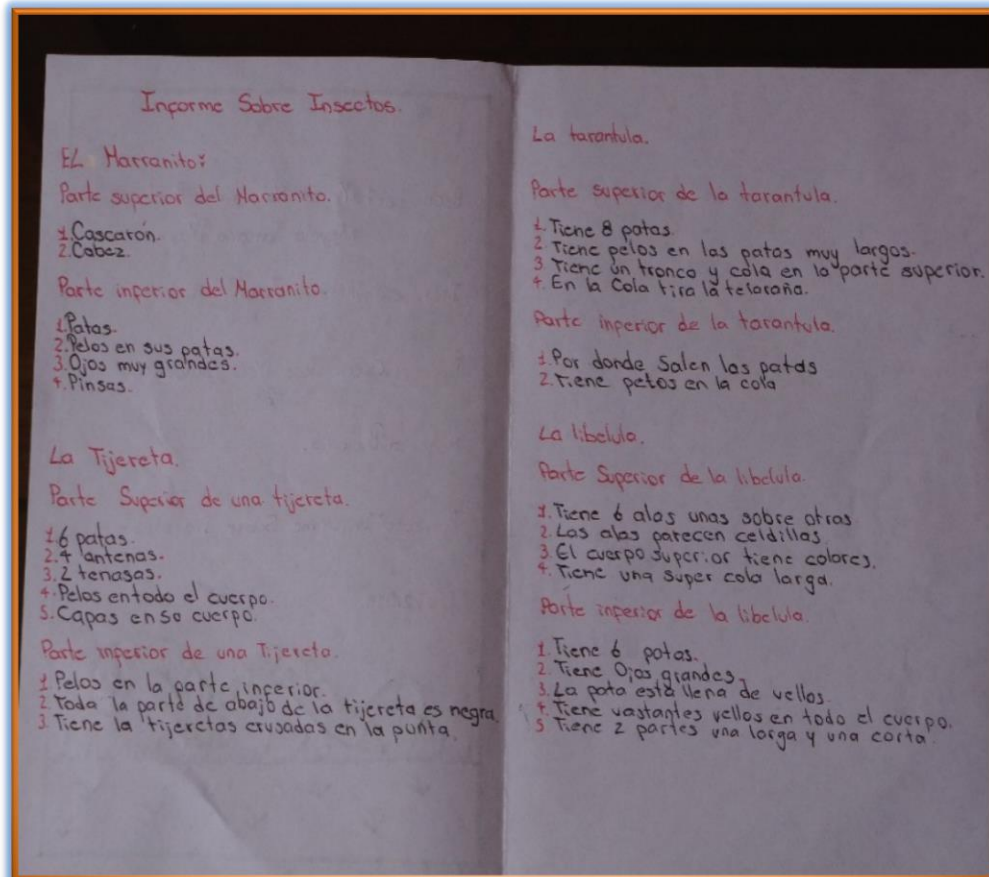 Informe Sobre Insectos.
EL Marranito:
Parte superior del Marranito.
1. Cascarón.
2. Cabez.
Parte inferior del Marranito
1. Patas.
2. Pelos en sus patas.
3. Ojos muy grandes.
4. Pinsas.
La Tijereta.
Parte Superior de una tijereta.
1. 6 patas.
2. 4 antenas.
3. 2 tenasas.
4. Pelos en todo el cuerpo.
5. Capas en so cuerpo.
Parte inferior de una Tijereta.
1 Pelos en la parte inferior.
2 Toda la parte de abajo de la tijereta es negra.
3 Tiene la tijeretas crusadas en la punta.
La tarantula.
Parte superior de la tarantula.
1. Tiene 8 patas.
2. Tiene pelos en las patas muy largos.
3 Tiene un tronco y cola en la parte superior.
4. En la Cola tira la telaraña.
Parte inferior de la tarantula.
1. Por donde Salen las patas
2. Tiene pelos en la cola
La libelula.
Parte Superior de la libelula.
1. Tiene 6 alas unas sobre otras
2. Las alas parecen celdillas
3. El cuerpo superior tiene colores.
4. Tiene una super cola larga.
Parte inferior de la libelula.
1. Tiene 6 patas.
2. Tiene Ojos grandes.
3. La pata está llena de vellos.
4. Tiene vastantes vellos en todo el cuerpo.
5. Tiene 2 partes una larga y una corta.